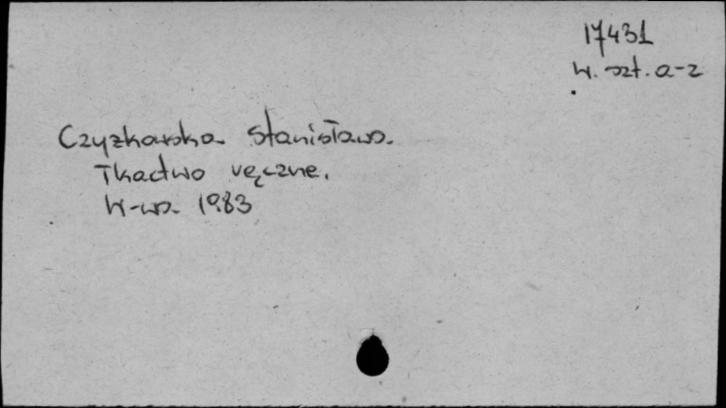 17431
W. szt. a-z
Czyżkowska Stanisława.
Tkactwo ręczne.
W-wa 1983